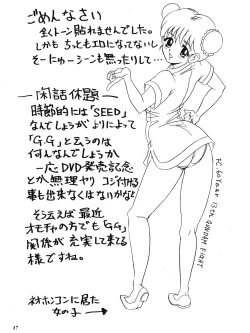 ごめんなさい
全くトーン貼れませんでした。
しかもちっともエロになってないし
そーにゅーシーンも無ったりして…
―閑話休題―
時節的には「SEED」
なんでしょうがよりによって
「G.G」と云うのは
何んなんでしょうか
一応DVD発売記念
とか無理ヤリコジ付ける
事も出来なくはないかなと
そう云えば最近
オモチャの方でも「G.G」
関係が充実して来てる
様ですね。
ネオホンコンに居た
女の子
FC 60 Year 13th GUNDAM FIGHT
37